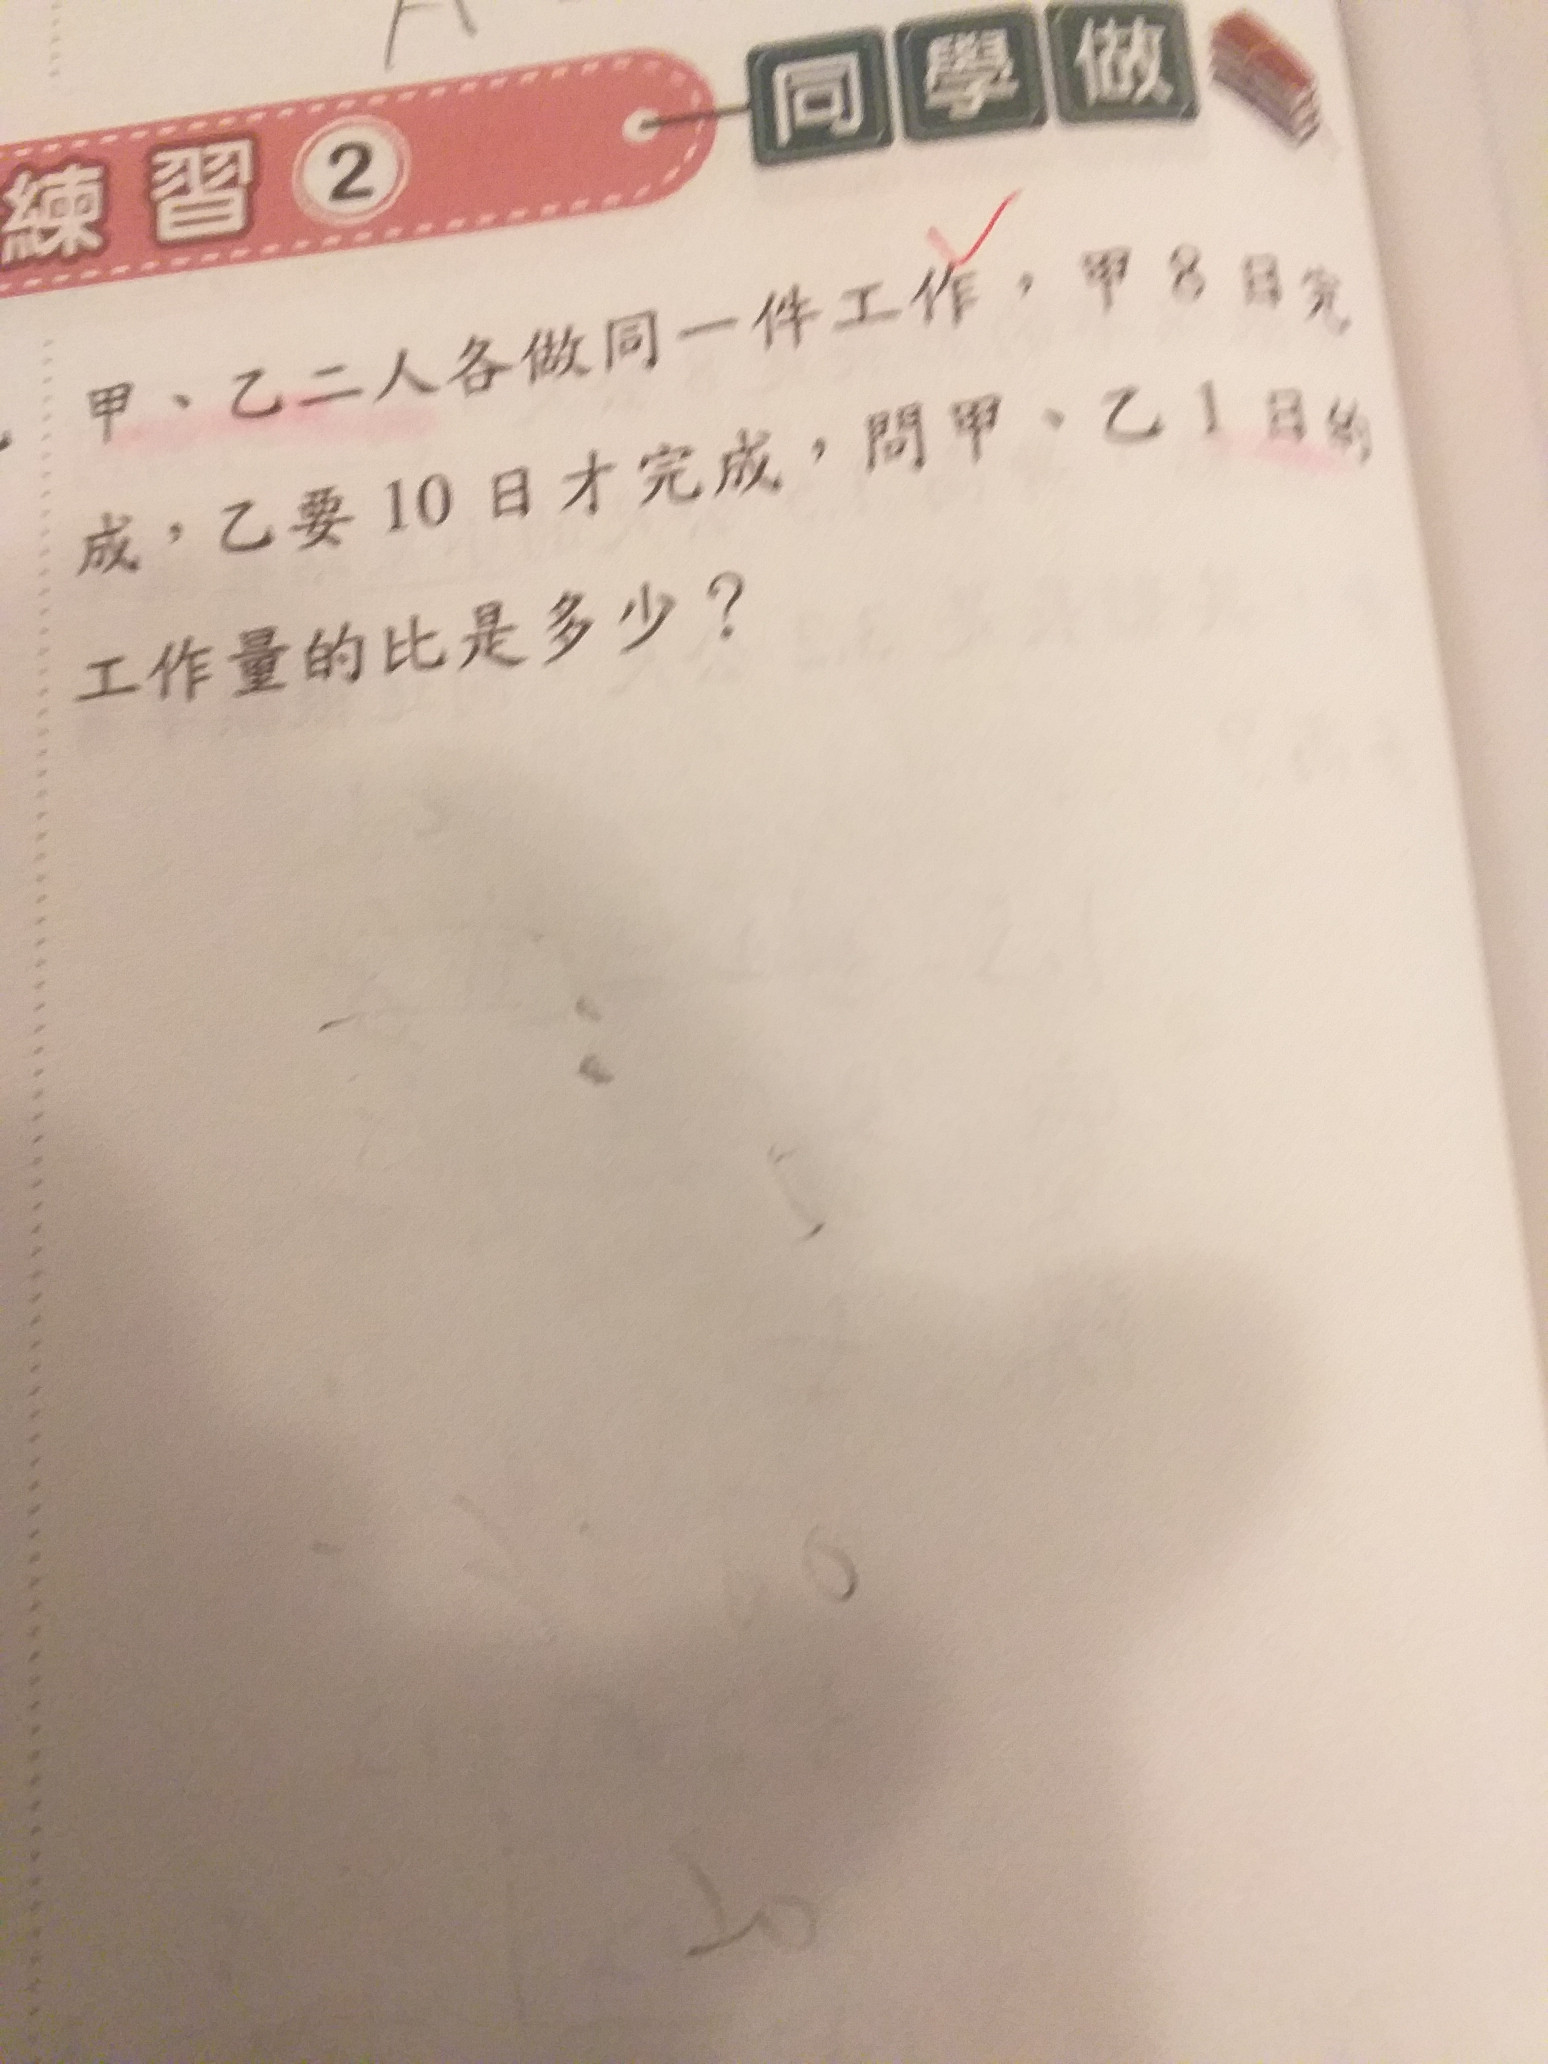 練習②
同學做
甲、乙二人各做同一件工作，甲8日完
成，乙要10日才完成，問甲、乙1日的
工作量的比是多少？
10